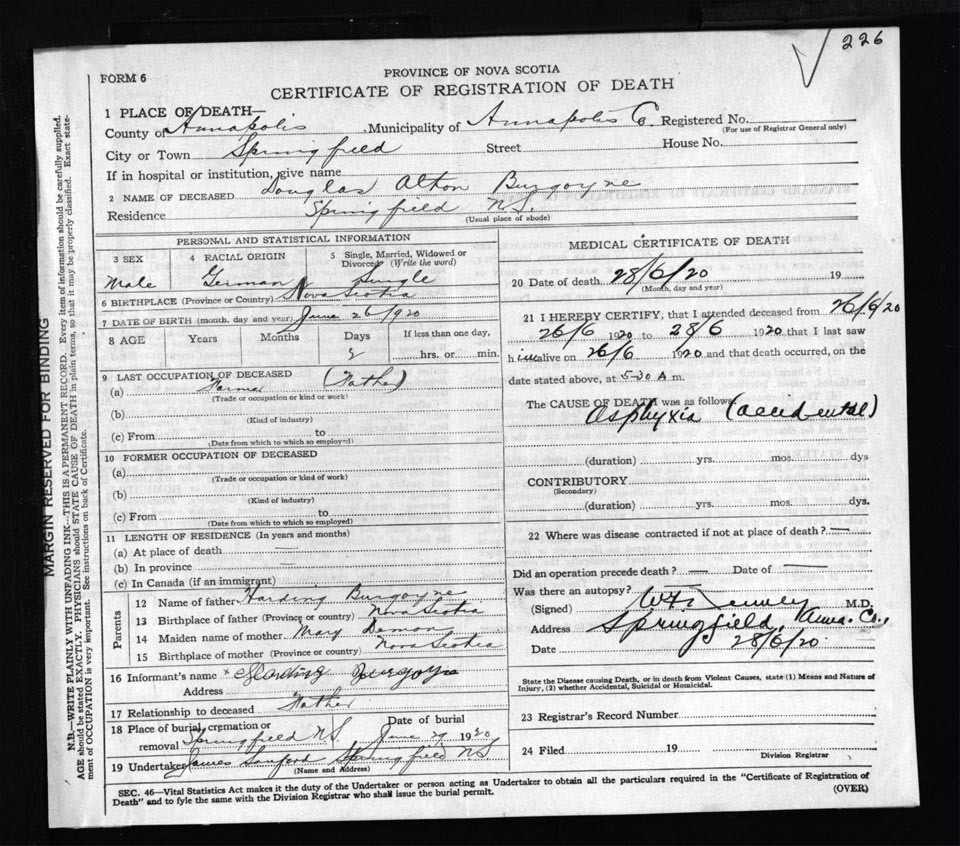 226
FORM 6
PROVINCE OF NOVA SCOTIA
CERTIFICATE OF REGISTRATION OF DEATH
1 PLACE OF DEATH—
County of Annapolis Municipality of Annapolis Co. Registered No.
(For use of Registrar General only)
City or Town Springfield Street House No.
If in hospital or institution, give name
2 NAME OF DECEASED Douglas Alton Burgoyne
Residence Springfield N.S.
(Usual place of abode)
PERSONAL AND STATISTICAL INFORMATION
3 SEX 4 RACIAL ORIGIN 5 Single, Married, Widowed or
Divorced (Write the word)
Male German Single
6 BIRTHPLACE (Province or Country) Nova Scotia
7 DATE OF BIRTH (month, day and year) June 26/1920
8 AGE Years Months Days If less than one day,
2 hrs. or min.
9 LAST OCCUPATION OF DECEASED
(a) Farmer (Father)
(Trade or occupation or kind or work)
(b)
(Kind of industry)
(c) From to
(Date from which to which so employed)
10 FORMER OCCUPATION OF DECEASED
(a)
(Trade or occupation or kind of work)
(b)
(Kind of industry)
(c) From to
(Date from which to which so employed)
11 LENGTH OF RESIDENCE (In years and months)
(a) At place of death —
(b) In province —
(c) In Canada (if an immigrant)
Parents
12 Name of father Harding Burgoyne
13 Birthplace of father (Province or country) Nova Scotia
14 Maiden name of mother Mary
15 Birthplace of mother (Province or country) Nova Scotia
16 Informant's name * Harding Burgoyne
Address
17 Relationship to deceased Father
18 Place of burial, cremation or Date of burial
removal Springfield N.S. June 29 1920
19 Undertaker James Sanford Springfield N.S
(Name and Address)
MEDICAL CERTIFICATE OF DEATH
20 Date of death 28/6/20 19
(Month, day and year)
21 I HEREBY CERTIFY, that I attended deceased from 26/6/20
26/6 1920 to 28/6 1920 that I last saw
him alive on 26/6 1920 and that death occurred, on the
date stated above, at 5-30 A m.
The CAUSE OF DEATH was as follows:
Asphyxia (accidental)
(duration) yrs. mos. dys
CONTRIBUTORY
(Secondary)
(duration) yrs. mos. dys.
22 Where was disease contracted if not at place of death? —
Did an operation precede death? — Date of —
Was there an autopsy? —
(Signed) M.D.
Address Springfield, Anna. Co.,
Date 28/6/20
State the Disease causing Death, or in death from Violent Causes, state (1) Means and Nature of
Injury, (2) whether Accidental, Suicidal or Homicidal.
23 Registrar's Record Number
24 Filed 19
Division Registrar
SEC. 46—Vital Statistics Act makes it the duty of the Undertaker or person acting as Undertaker to obtain all the particulars required in the "Certificate of Registration of
Death" and to fyle the same with the Division Registrar who shall issue the burial permit. (OVER)
MARGIN RESERVED FOR BINDING
N.B.—WRITE PLAINLY WITH UNFADING INK—THIS IS A PERMANENT RECORD. Every item of information should be carefully supplied.
AGE should be stated EXACTLY. PHYSICIANS should STATE CAUSE OF DEATH in plain terms, so that it may be properly classified. Exact state-
ment of OCCUPATION is very important. See instructions on back of Certificate.